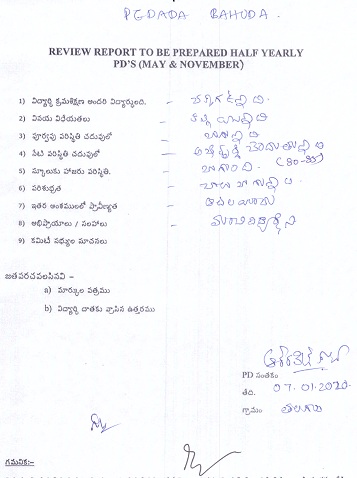 PGDADA BAHUDA.
REVIEW REPORT TO BE PREPARED HALF YEARLY
PD'S (MAY & NOVEMBER)
1) విద్యార్ధి క్రమశిక్షణ అందరి విద్యార్థులది. -
2) వినయ విధేయతలు -
3) పూర్వపు పరిస్థితి చదువులో - బాగున్నది
4) నేటి పరిస్థితి చదువులో -
5) స్కూలుకు హాజరు పరిస్థితి. - బాగుంది. (80-85)
6) పరిశుభ్రత - చాలా బాగున్నది.
7) ఇతర అంశములలో ప్రావీణ్యత - ఆటలయందు
8) అభిప్రాయాలు / సలహాలు - మంచి విద్యార్థిని
9) కమిటీ సభ్యుల సూచనలు
జతపరచవలసినవి -
a) మార్కుల పత్రము
b) విద్యార్ధి దాతకు వ్రాసిన ఉత్తరము
PD సంతకం
తేది. 07.01.2020
గ్రామం
గమనిక:-